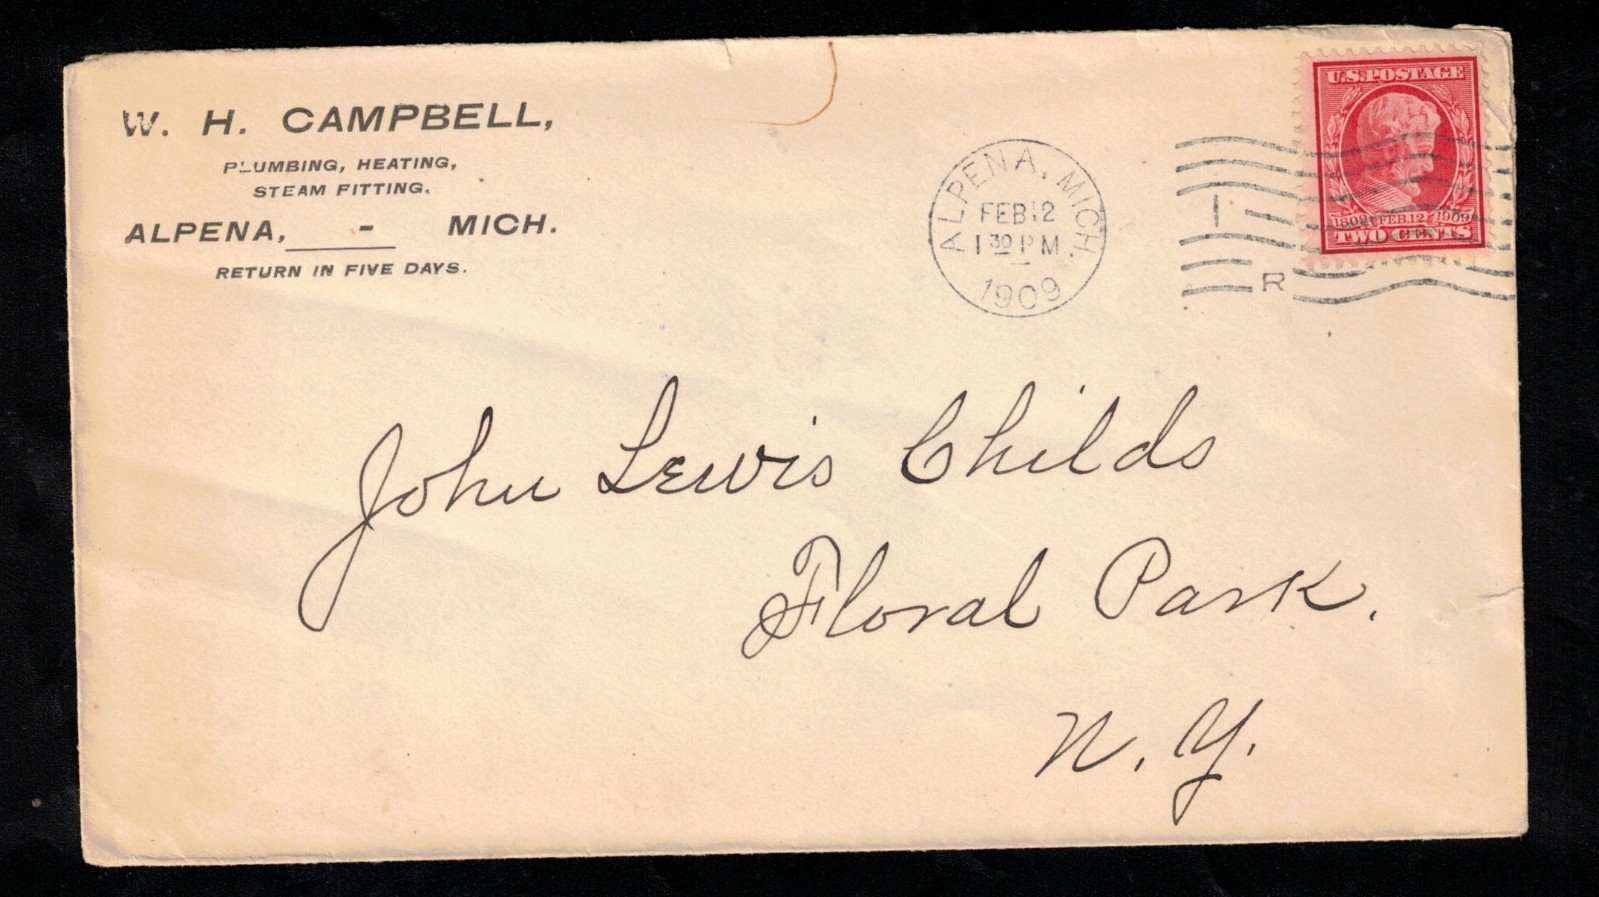 W. H. CAMPBELL,
PLUMBING, HEATING,
STEAM FITTING.
ALPENA, - MICH.
RETURN IN FIVE DAYS.
ALPENA, MICH.
FEB 12
1 30 PM
1909
1
R
U.S. POSTAGE
1809 FEB. 12 1909
TWO CENTS
John Lewis Childs
Floral Park.
N. Y.